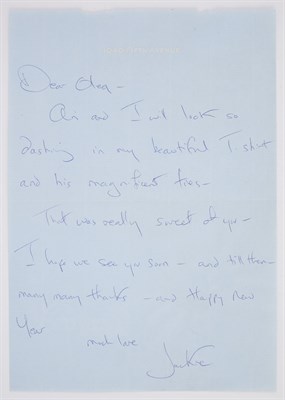 Dear Oleg –
Ari and I will look so
dashing in my beautiful T shirt
and his magnificent ties –
That was really sweet of you –
I hope we see you soon – and till then –
many many thanks – and Happy New
Year
much love
Jackie